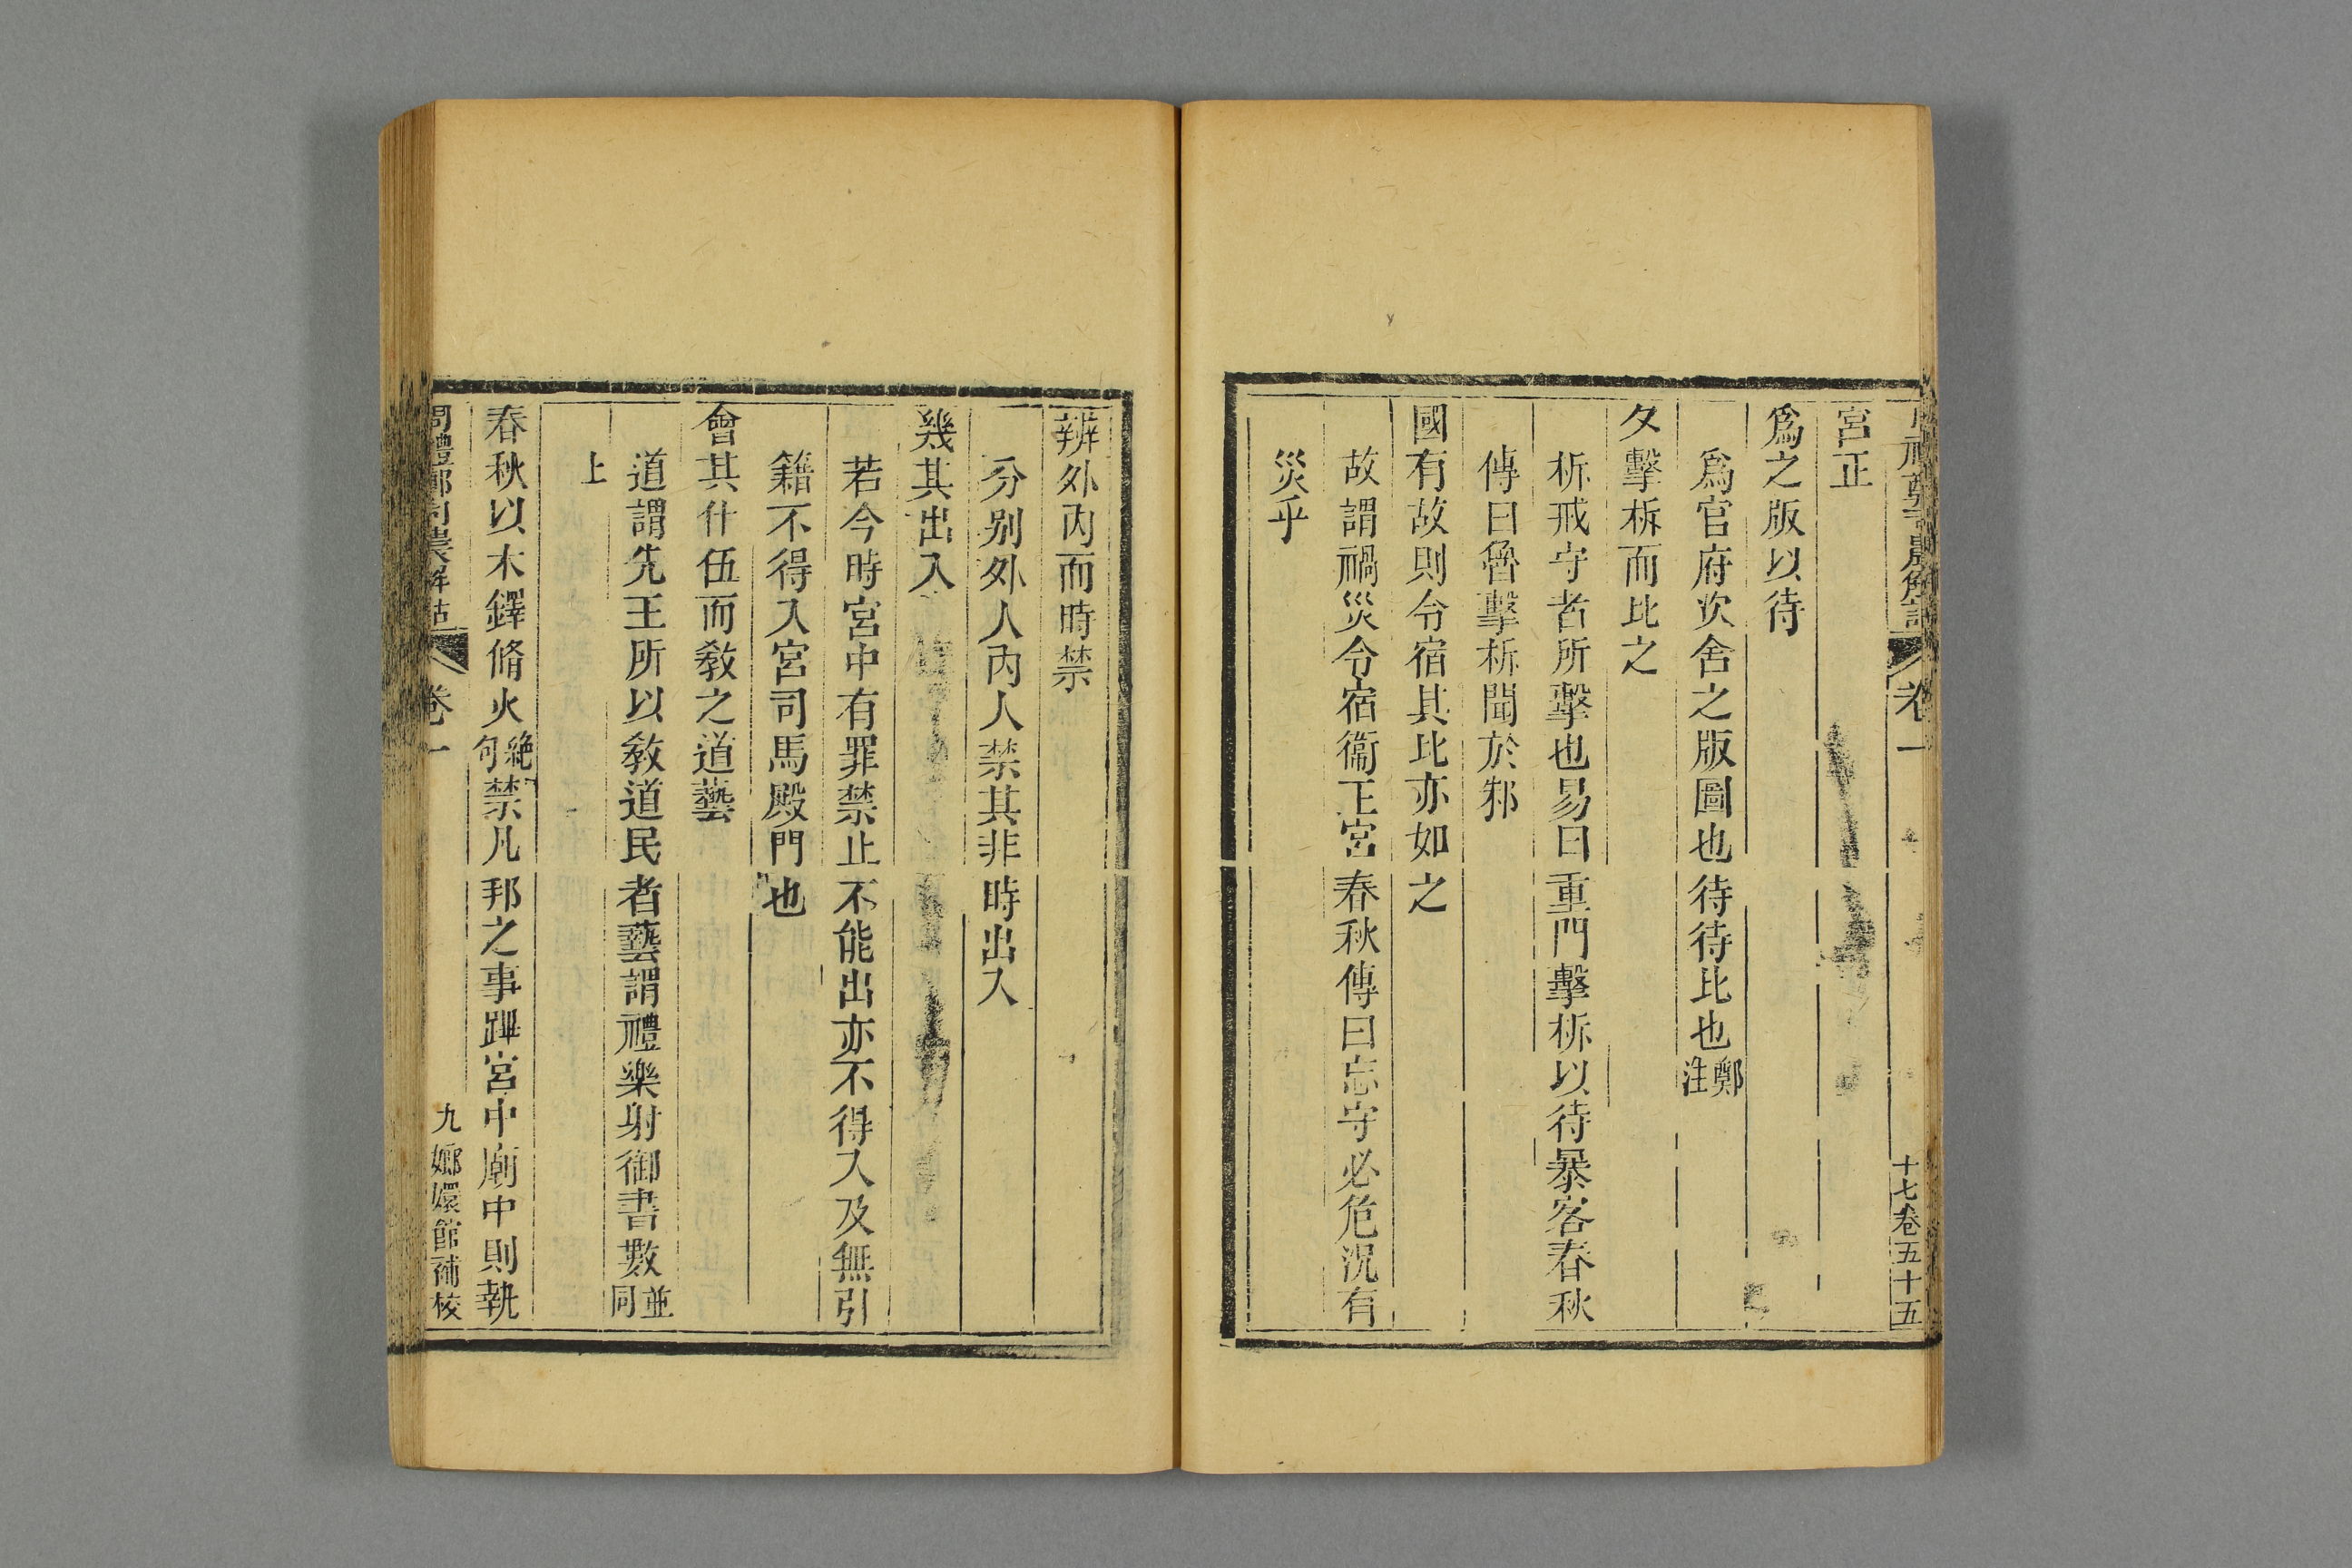 宮正
爲之版以待
爲官府次舍之版圖也待待比也鄭注
夕擊柝而比之
柝戒守者所擊也易曰重門擊柝以待暴客春秋
傳曰魯擊柝聞於邾
國有故則令宿其比亦如之
故謂禍災令宿衞王宮春秋傳曰忘守必危況有
災乎
卷一
十七卷五十五
辨外內而時禁
分别外人內人禁其非時出入
幾其出入
若今時宮中有罪禁止不能出亦不得入及無引
籍不得入宮司馬殿門也
會其什伍而敎之道藝
道謂先王所以敎道民者藝謂禮樂射御書數並同
上
春秋以木鐸脩火絶句禁凡邦之事蹕宮中廟中則執
周禮鄭司農解詁
卷一
九
嫏嬛館補校